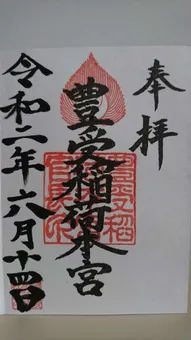 奉拝
豊受稲荷本宮
令和二年六月十四日